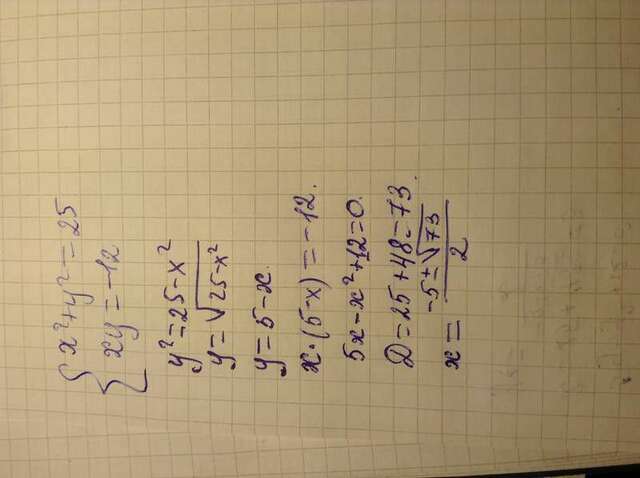 { x²+y² = 25
xy = -12
y² = 25-x²
y = √(25-x²)
y = 5-x.
x·(5-x) = -12.
5x-x²+12=0.
D=25+48=73.
x = (-5±√73)/2